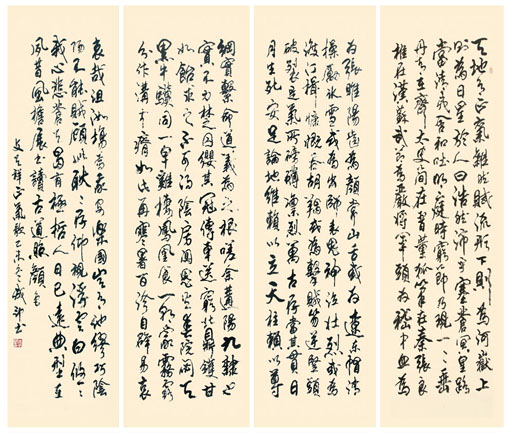 天地有正氣雜然賦流形下則為河嶽上
則為日星於人曰浩然沛乎塞蒼冥皇路
當清夷含和吐明庭時窮節乃現一一垂
丹青在齊太史簡在晉董狐筆在秦張良
椎在漢蘇武節為嚴將軍頭為嵇侍中血為
為張睢陽齒為顏常山舌或為遼東帽清
操厲冰雪或為出師表鬼神泣壯烈或為
渡江楫慷慨吞胡羯或為擊賊笏逆豎頭
破裂是氣所磅礴凜烈萬古存當其貫日
月生死安足論地維賴以立天柱賴以尊
綱實繫命道義為之根嗟余遘陽九隸也
實不力楚囚纓其冠傳車送窮北鼎鑊甘
如飴求之不可得陰房闃鬼火春院閟天
黑牛驥同一皁雞棲鳳凰食一朝蒙霧露
分作溝中瘠如此再寒暑百沴自辟易哀
哀哉沮洳場為我安樂國豈有他繆巧陰
陽不能賊顧此耿耿存仰視浮雲白悠悠
我心悲蒼天曷有極哲人日已遠典型在
夙昔風檐展書讀古道照顏色
文天祥正氣歌